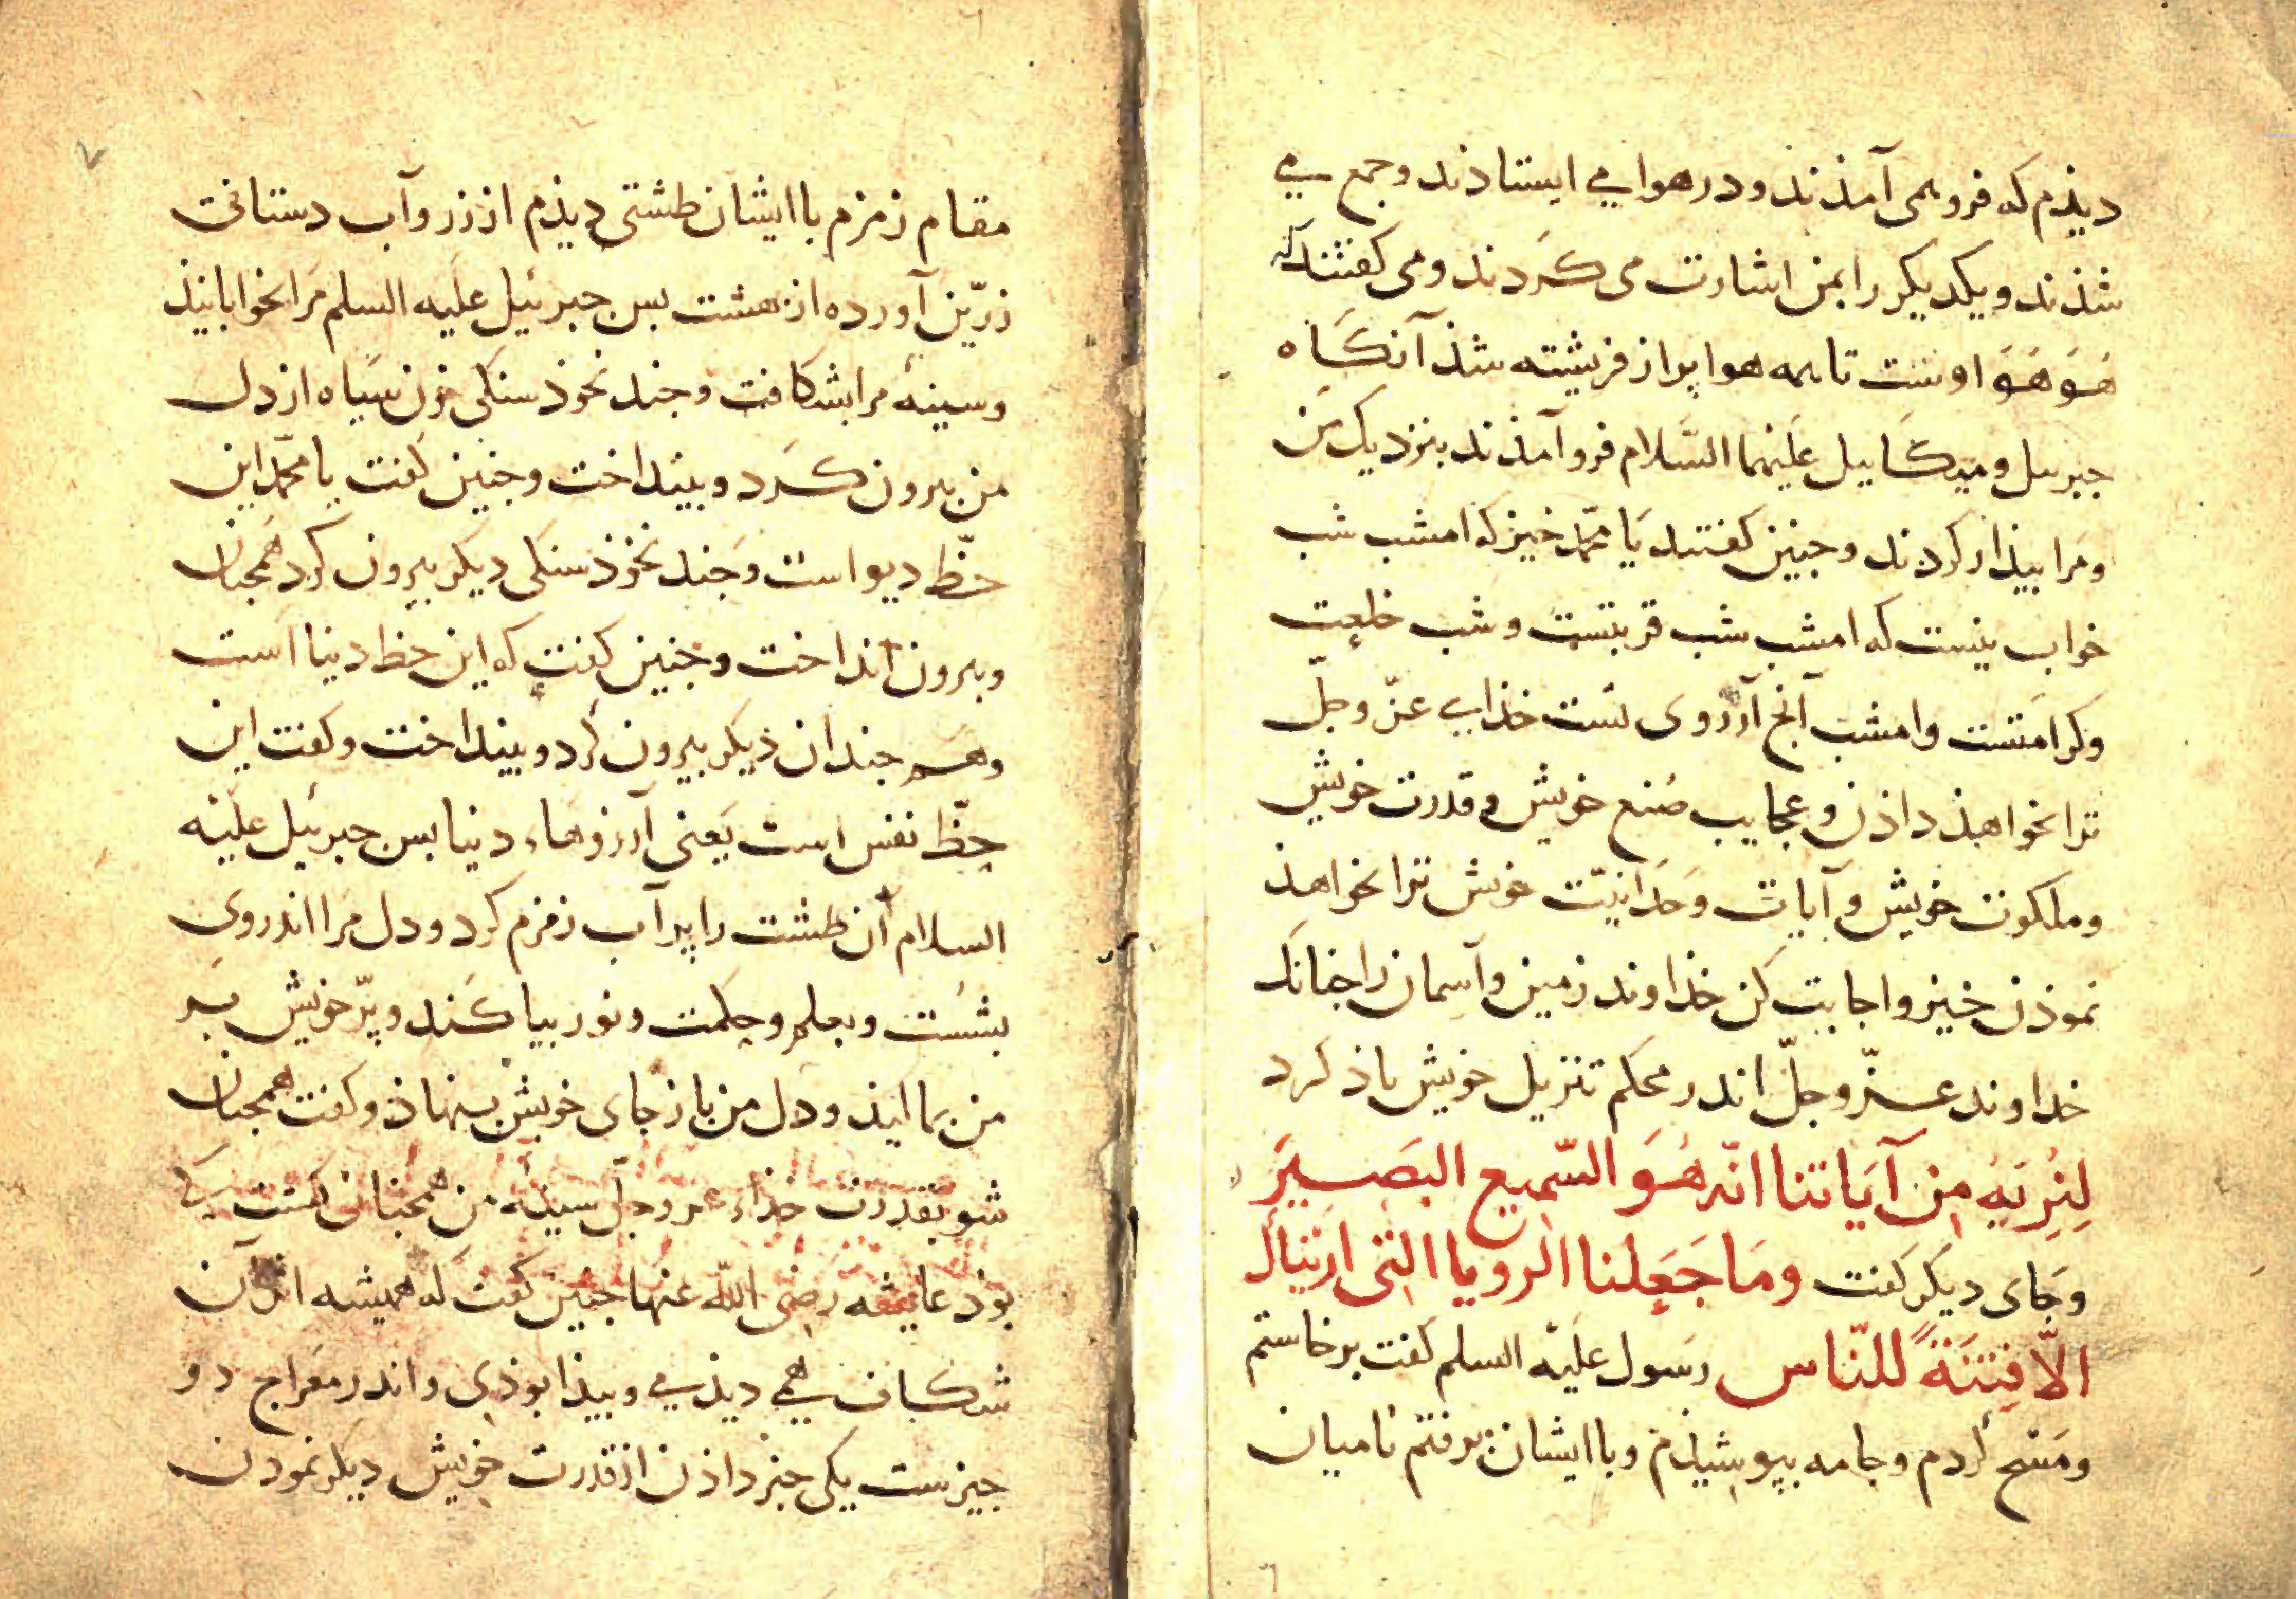 دیذم که فرو همی آمذند و در هوا می ایستاذند و جمع می
شذند و یکدیکر را بمن اشارت می کردند و می کفتند که
هُوَ هُوَ اوست تا همه هوا پراز فریشته شذ آنکاه
جبریل و میکاییل علیهما السّلام فرو آمذند بنزدیک من
و مرا بیذار کردند و جنین کفتند یا محمّد خیز که امشب شب
خواب نیست که امشب شب قربتست و شب خلعت
و کرامتست و امشب آنج آرزوی تست خذای عزّ و جلّ
ترا بخواهذ داذن و عجایب صُنع خویش و قدرت خویش
و ملکوت خویش و آیات وحدانیّت خویش ترا بخواهذ
نموذن خیز و اجابت کن خذاوند زمین و آسمان را جنانک
خداوند عزّ و جلّ اندر محکم تنزیل خویش یاذ کرد
لِنُرِیَهُ مِن آیَاتنا انّه هُوَ السّمیع البَصِیرَ
و جای دیکر کفت ومَا جَعَلنا الرویا التی اریناک
الّا فِتنَةً للنّاس رسول علیه السلم کفت برخاستم
و مَسح کردم و جامه بپوشیذم و با ایشان برفتم تا میان
۷
مقام زمزم با ایشان طشتی دیذم از زر و آب دستانی
زرّین آورده از بهشت بس جبرئیل علیه السلم مرا بخوابانیذ
و سینهٔ مرا بشکافت و جند نخوذ سنکی خون سیاه از دل
من بیرون کرد و بینداخت و جنین کفت یا محمّد این
حظّ دیو است و جند نخوذ سنکی دیکر بیرون کرد همجنان
و بیرون انداخت و جنین کفت که این حظ دنیا است
و هم جندان دیکر بیرون کرد و بینداخت و کفت این
حظّ نفس است یعنی آرزوهاء دنیا بس جبرئیل علیه
السلام آن طشت را پر آب زمزم کرد و دل مرا اندر وی
بشست و بعلم و حکمت و نور بیاکند و پرّ خویش بر
من بمالیذ و دل من باز جای خویش بنهاذ و کفت همجنان
شو بقدرت خذاء عز و جل سینه من همجنان کشت کی
بوذ عایشه رضی الله عنها جنین کفت که همیشه اثر آن
شکاف همی دیذمی و بیذا بوذی و اندر معراج دو
جیزست یکی خبر داذن از قدرت خویش دیکر نمودن